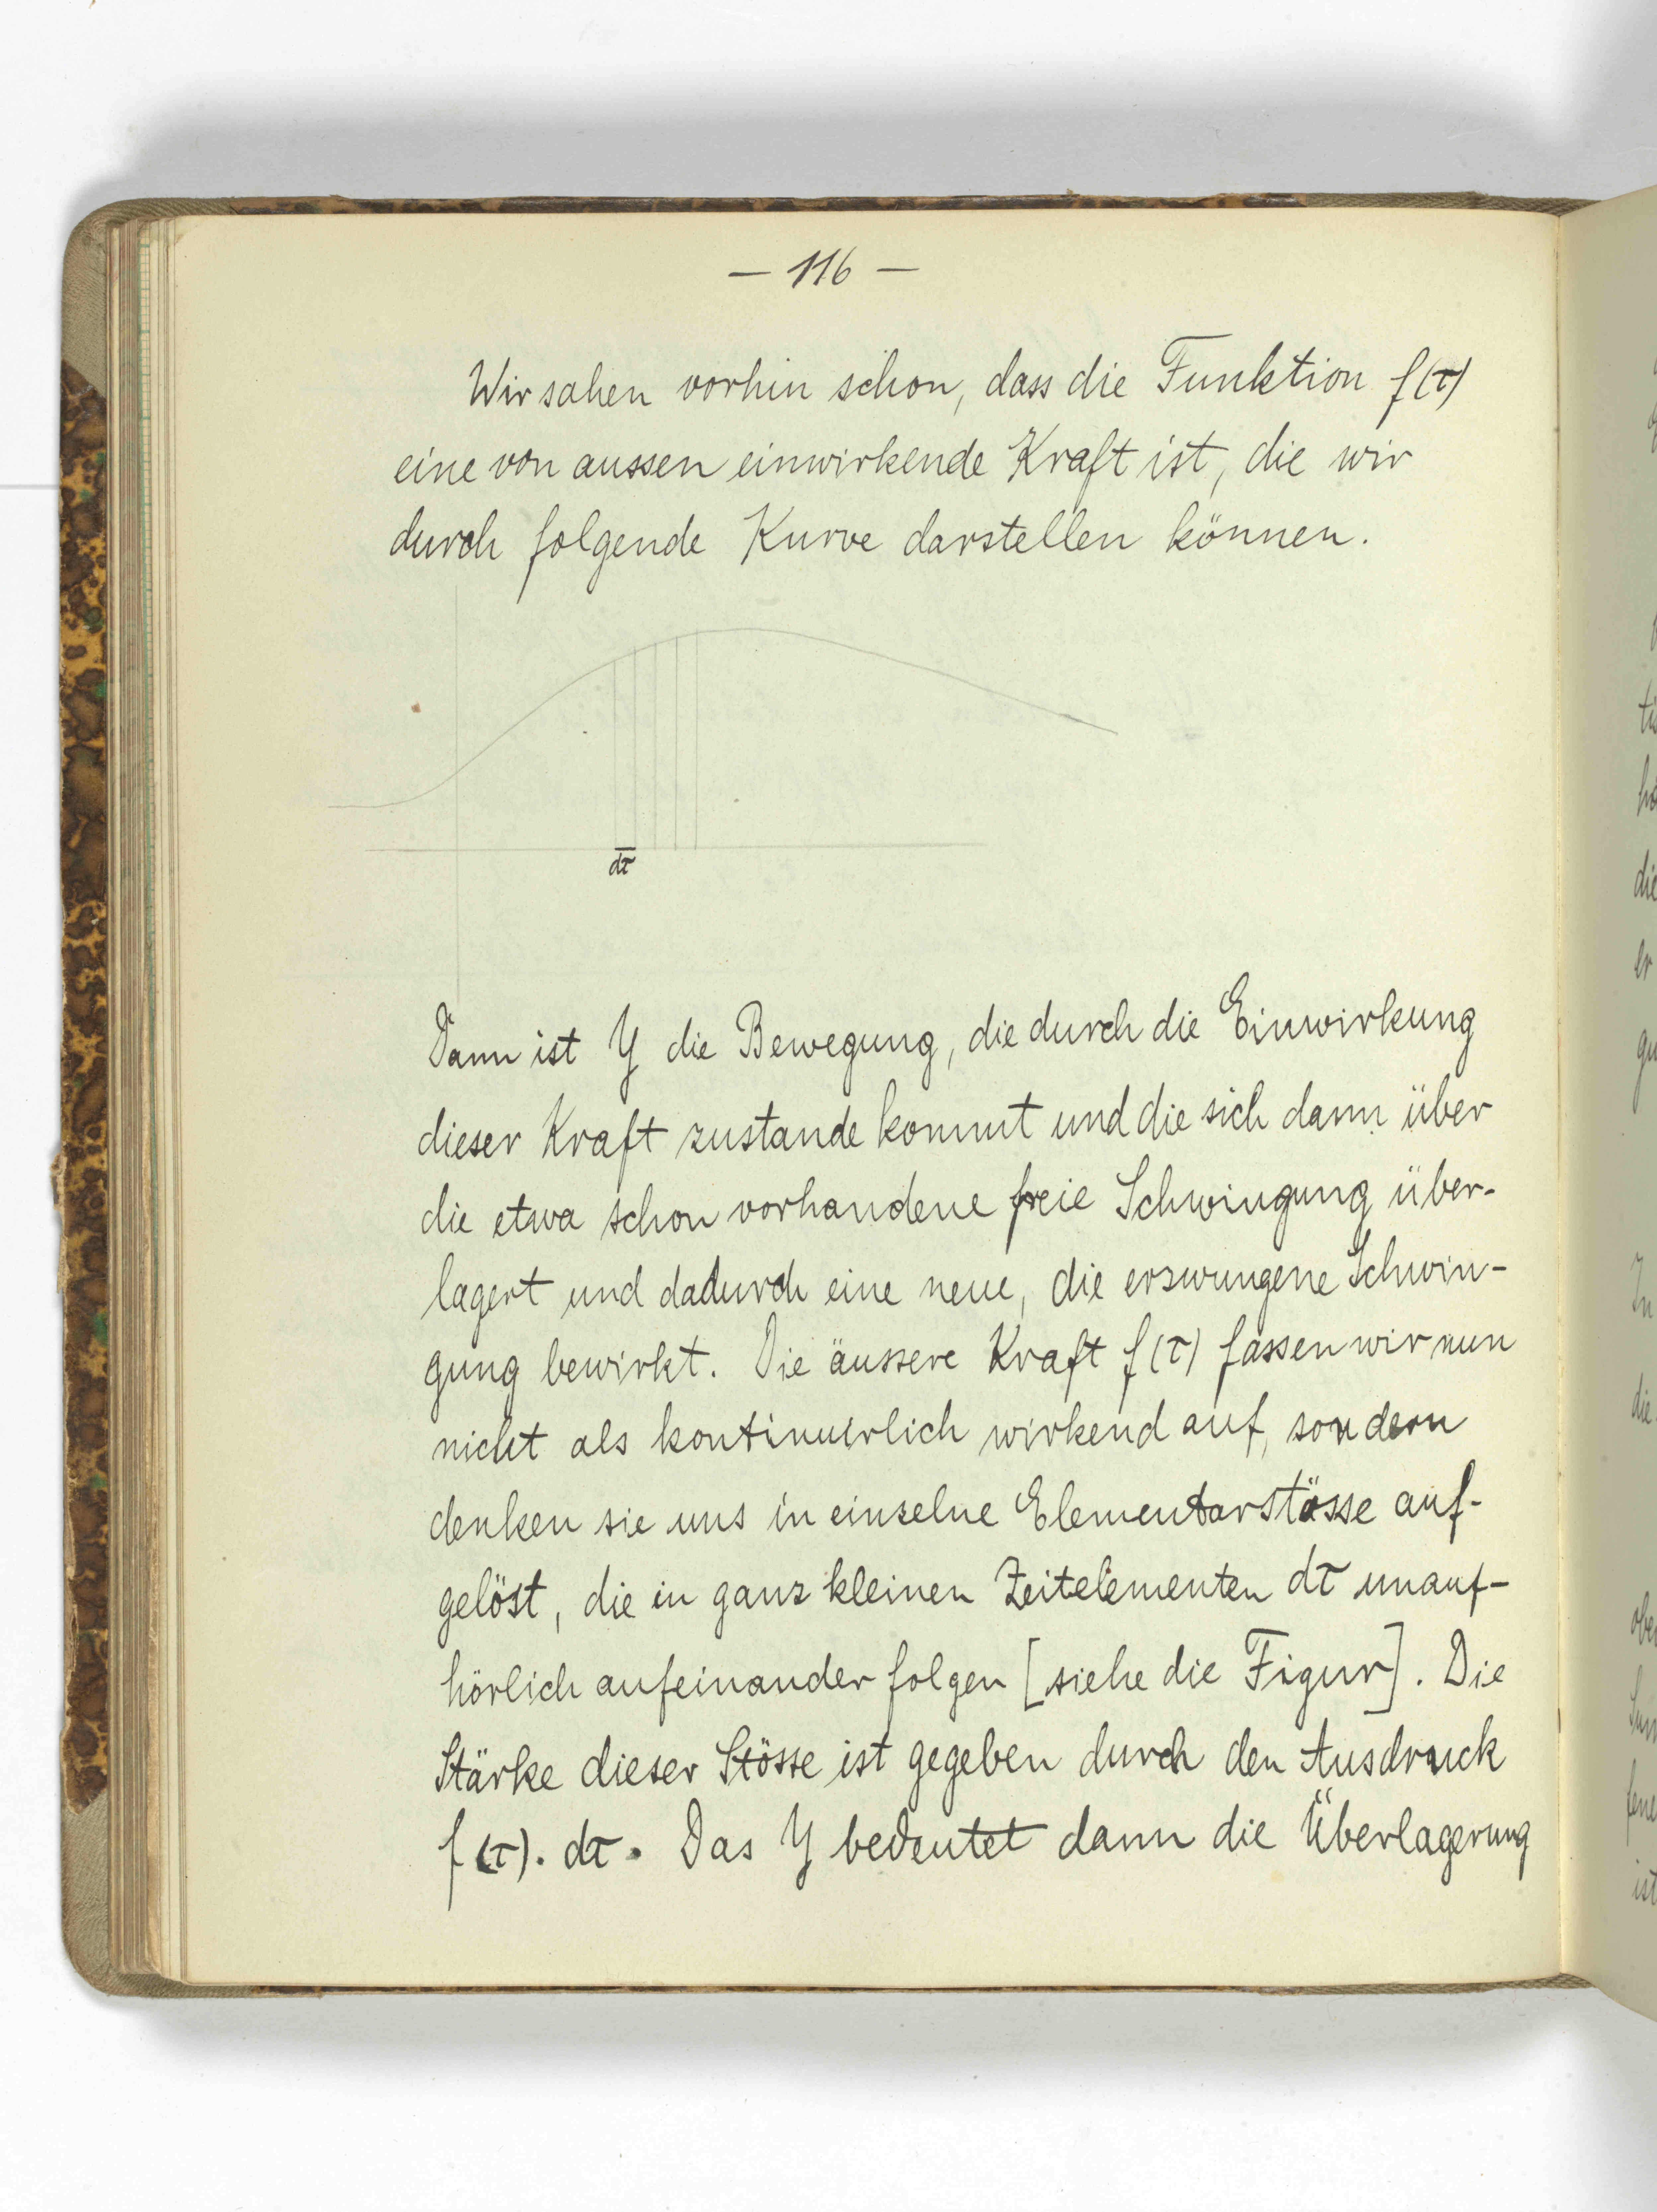 — 116 —
Wir sahen vorhin schon, dass die Funktion f(τ)
eine von aussen einwirkende Kraft ist, die wir
durch folgende Kurve darstellen können.
dτ
Dann ist Y die Bewegung, die durch die Einwirkung
dieser Kraft zustande kommt und die sich dann über
die etwa schon vorhandene freie Schwingung über-
lagert und dadurch eine neue, die erzwungene Schwin-
gung bewirkt. Die äussere Kraft f(τ) fassen wir nun
nicht als kontinuirlich wirkend auf, sondern
denken sie uns in einzelne Elementarstösse auf-
gelöst, die in ganz kleinen Zeitelementen dτ unauf-
hörlich aufeinander folgen [siehe die Figur]. Die
Stärke dieser Stösse ist gegeben durch den Ausdruck
f(τ). dτ. Das Y bedeutet dann die Überlagerung